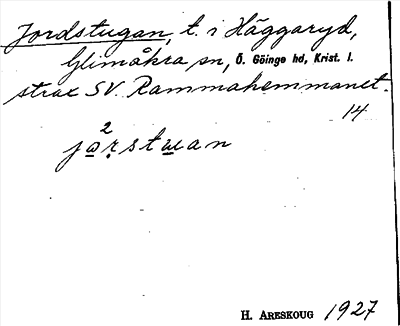 Jordstugan, t. i Häggaryd,
Glimåkra sn, Ö. Göinge hd, Krist. l.
strax SV. Rammahemmanet.
14
2
H. ARESKOUG 1927